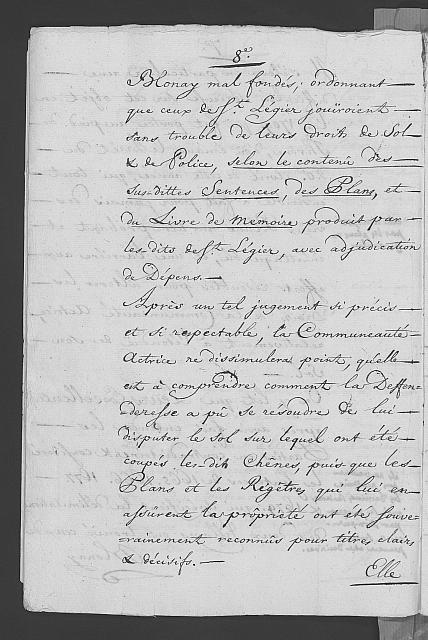 8.e
Blonay mal fondés; ordonnant
que ceux de St. Légier jouïroient
sans trouble de leurs droits de Sol
& de Police, selon le contenû des
sus-dittes Sentences, des Plans, et
du Livre de Mémoire produit par
les dits de St. Légier, avec adjudication
de Dépens.
Après un tel jugement si précis
et si respectable, la Communeauté
Actrice ne dissimulera point, qu'elle
est à comprendre comment la Deffen-
deresse a pû se résoudre de lui
disputer le Sol sur lequel ont été
coupés les dits Chênes, puis que les
Plans et les Régîtres qui lui en
assûrent la propriété ont été souve-
rainement reconnûs pour titres clairs
& décisifs.
Elle